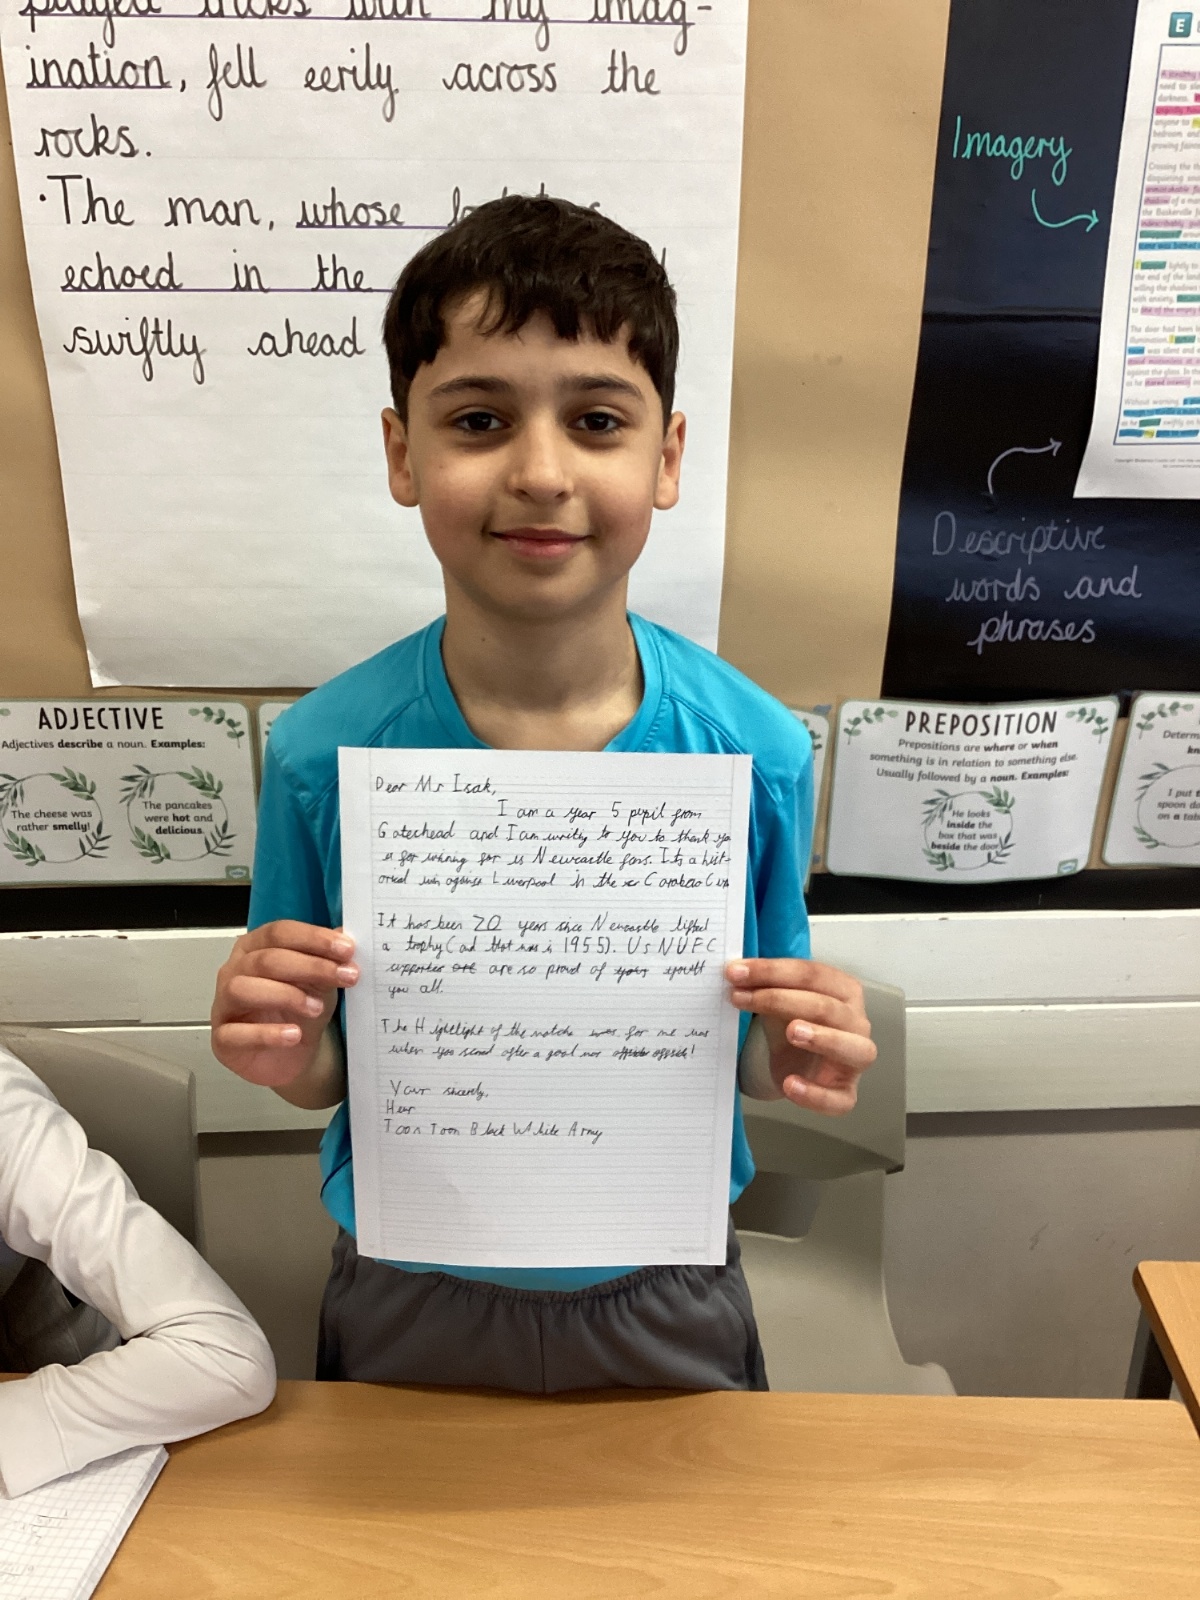 played tricks with my imag-
ination, fell eerily across the
rocks.
·The man, whose
echoed in the
swiftly ahead
Imagery
Descriptive
words and
phrases
E
ADJECTIVE
Adjectives describe a noun. Examples:
The cheese was
rather smelly!
The pancakes
were hot and
delicious.
PREPOSITION
Prepositions are where or when
something is in relation to something else.
Usually followed by a noun. Examples:
He looks
inside the
box that was
beside the door.
Determ
kn
I put t
spoon
on a tab
Dear Mr Isak,
I am a year 5 pupil from
Gateshead and I am writig to you to thank yo
u for wining for us Newcastle fans. Its a hist-
orical win against Liverpool in the Carabao Cup
It has been 70 years since Newcastle lifted
a trophy (and that was in 1955). Us NUFC
supporter are are so proud of your
you all.
The Highlight of the matche was for me was
when you scored after a goal not offside offside!
Your sincerly,
Toon Toon Black White Army